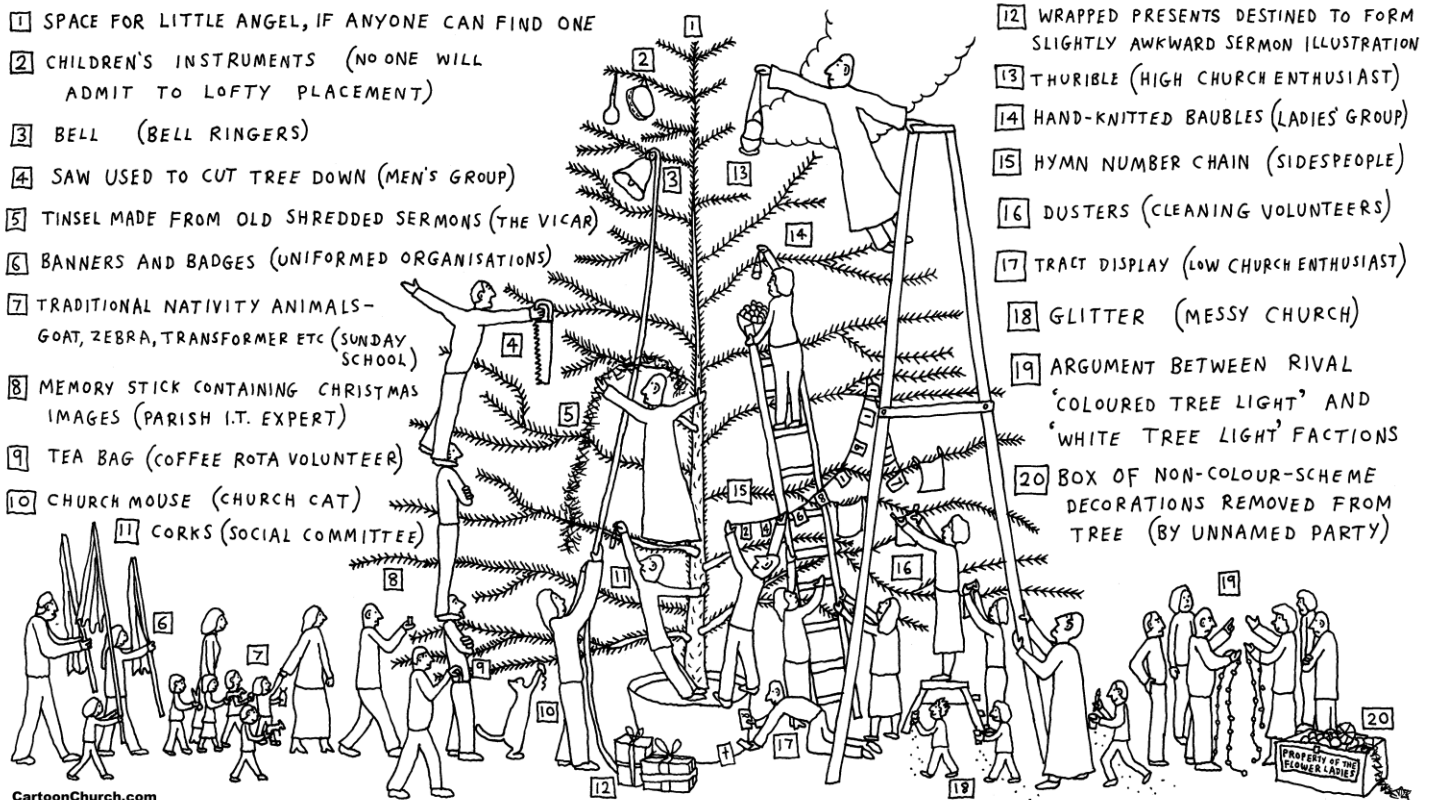 1 SPACE FOR LITTLE ANGEL, IF ANYONE CAN FIND ONE
2 CHILDREN'S INSTRUMENTS (NO ONE WILL
ADMIT TO LOFTY PLACEMENT)
3 BELL (BELL RINGERS)
4 SAW USED TO CUT TREE DOWN (MEN'S GROUP)
5 TINSEL MADE FROM OLD SHREDDED SERMONS (THE VICAR)
6 BANNERS AND BADGES (UNIFORMED ORGANISATIONS)
7 TRADITIONAL NATIVITY ANIMALS-
GOAT, ZEBRA, TRANSFORMER ETC (SUNDAY
SCHOOL)
8 MEMORY STICK CONTAINING CHRISTMAS
IMAGES (PARISH I.T. EXPERT)
9 TEA BAG (COFFEE ROTA VOLUNTEER)
10 CHURCH MOUSE (CHURCH CAT)
11 CORKS (SOCIAL COMMITTEE)
12 WRAPPED PRESENTS DESTINED TO FORM
SLIGHTLY AWKWARD SERMON ILLUSTRATION
13 THURIBLE (HIGH CHURCH ENTHUSIAST)
14 HAND-KNITTED BAUBLES (LADIES' GROUP)
15 HYMN NUMBER CHAIN (SIDESPEOPLE)
16 DUSTERS (CLEANING VOLUNTEERS)
17 TRACT DISPLAY (LOW CHURCH ENTHUSIAST)
18 GLITTER (MESSY CHURCH)
19 ARGUMENT BETWEEN RIVAL
'COLOURED TREE LIGHT' AND
'WHITE TREE LIGHT' FACTIONS
20 BOX OF NON-COLOUR-SCHEME
DECORATIONS REMOVED FROM
TREE (BY UNNAMED PARTY)
1
2
3
13
14
4
5
15
8
11
16
6
7
9
19
10
17
20
12
18
2 4 6 8
PROPERTY OF THE
FLOWER LADIES
CartoonChurch.com